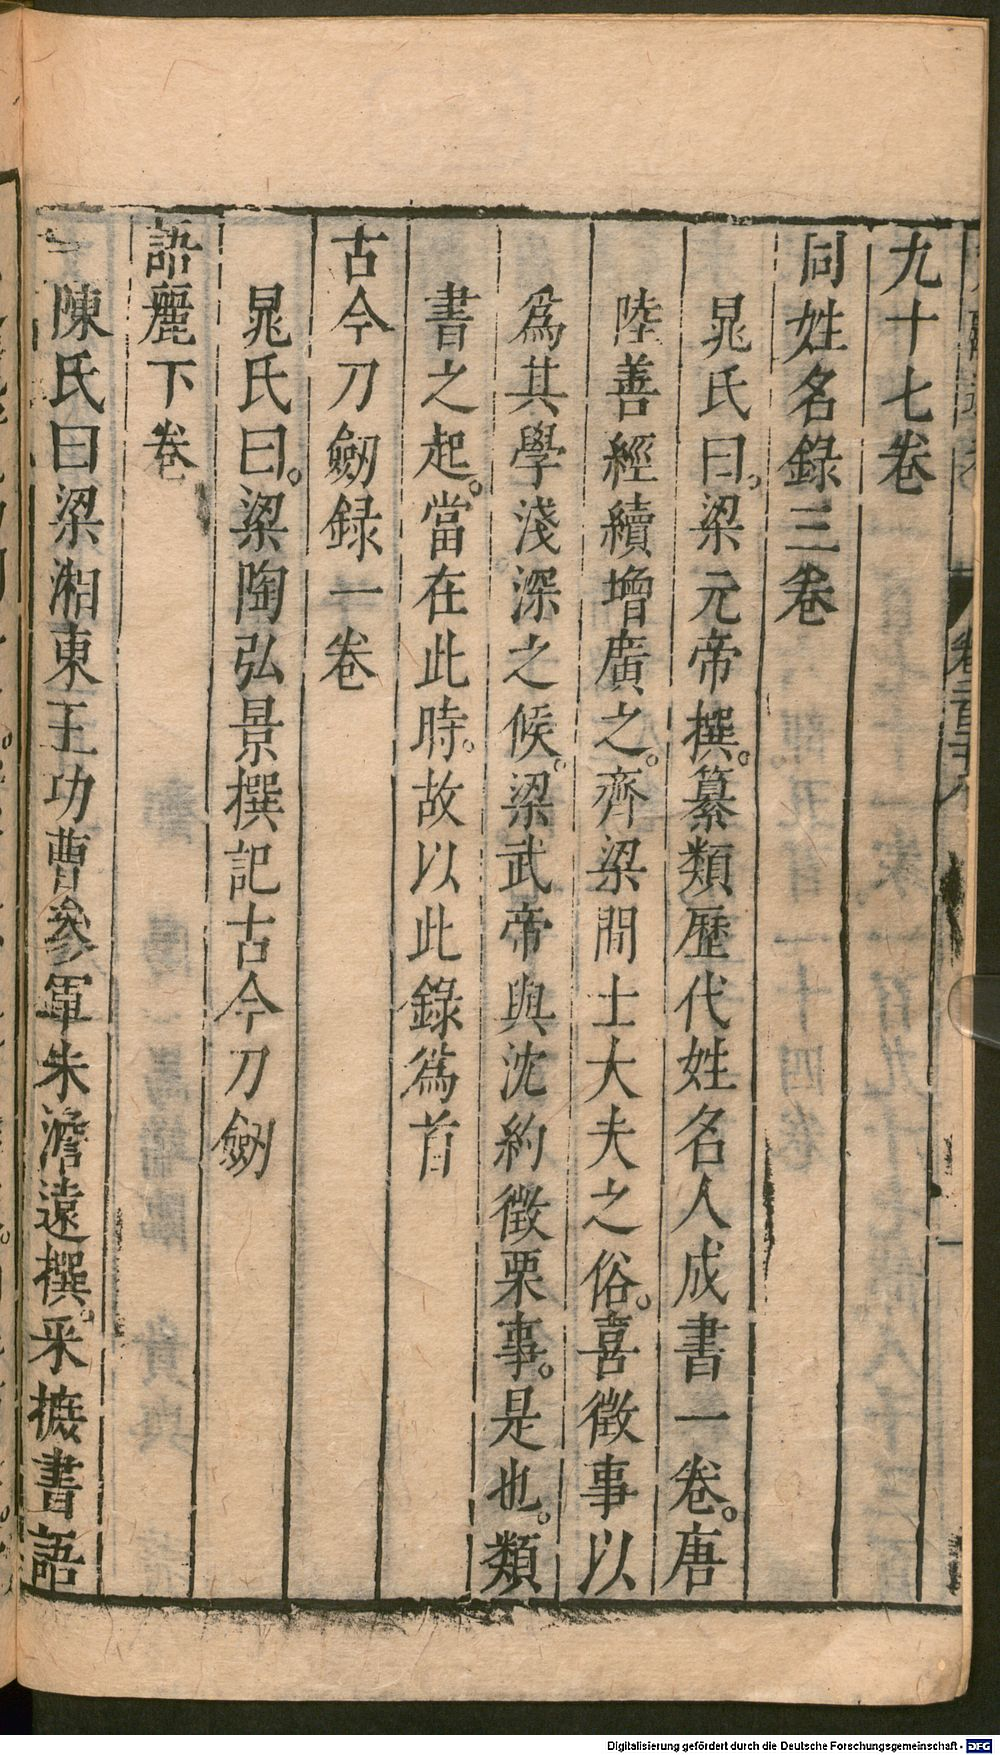 九十七卷
同姓名錄三卷
晁氏曰梁元帝撰纂類歷代姓名人成書一卷唐
陸善經續增廣之齊梁間士大夫之俗喜徵事以
爲其學淺深之候梁武帝與沈約徵栗事是也類
書之起當在此時故以此錄爲首
古今刀劒録一卷
晁氏曰梁陶弘景撰記古今刀劒
語麗下卷
陳氏曰梁湘東王功曹參軍朱澹遠撰采摭書語
Digitalisierung gefördert durch die Deutsche Forschungsgemeinschaft - DFG